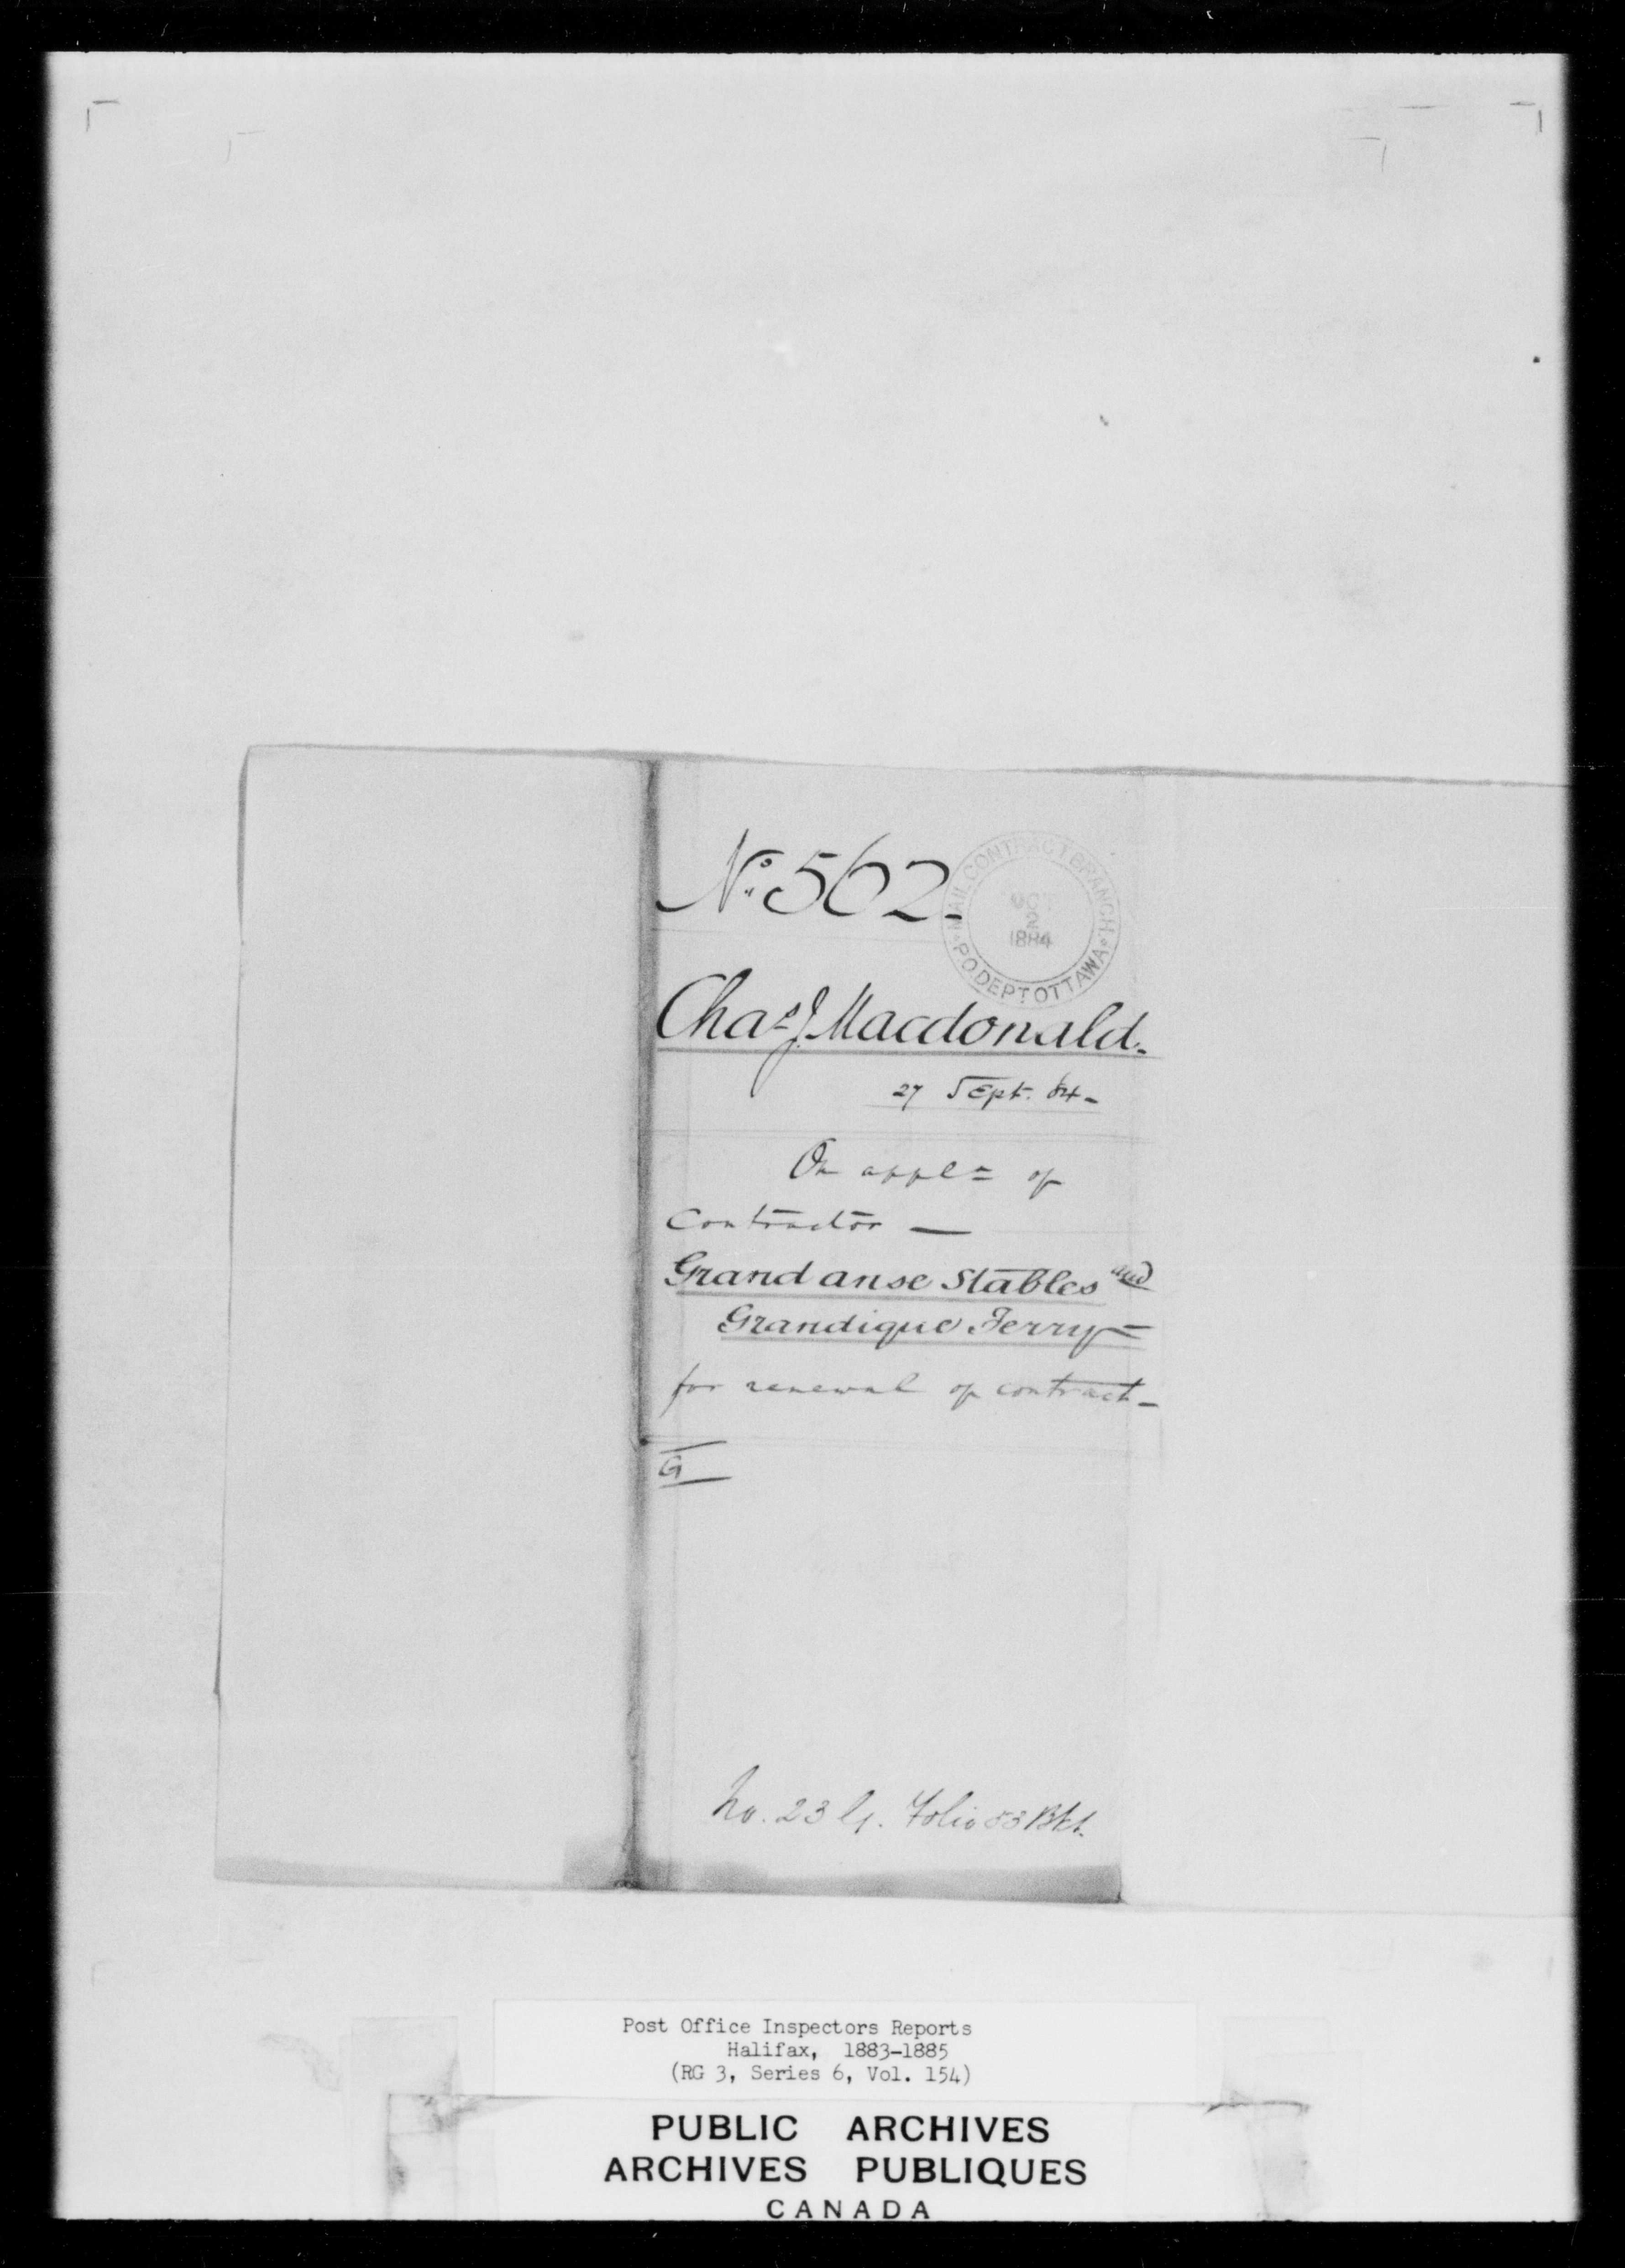 No. 562-
MAIL CONTRACT BRANCH.
OCT
2
1884
P.O. DEPT OTTAWA
Chas J. Macdonald.
27 Sept. 84-
On appln of
Contractor —
Grand anse Stables and
Grandique Ferry-
for renewal of contract-
G
No. 23 Folio 53
Post Office Inspectors Reports
Halifax, 1883-1885
(RG 3, Series 6, Vol. 154)
PUBLIC ARCHIVES
ARCHIVES PUBLIQUES
CANADA